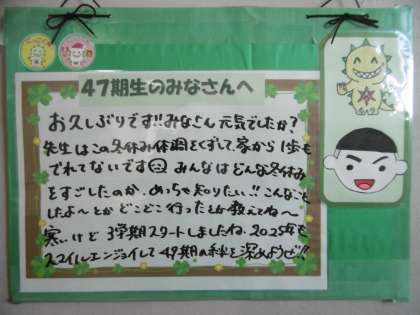 47期生のみなさんへ
お久しぶりです!!みなさん元気でしたか?
先生はこの冬休み体調をくずして、家から1歩も
でれてないです みんなはどんな冬休み
をすごしたのか、めっちゃ知りたい!!こんなこと
したよ〜とかどこどこ行ったとか教えてね〜
寒いけど3学期スタートしましたね。2025年も
スマイルエンジョイして47期の絆を深めようぜ!!